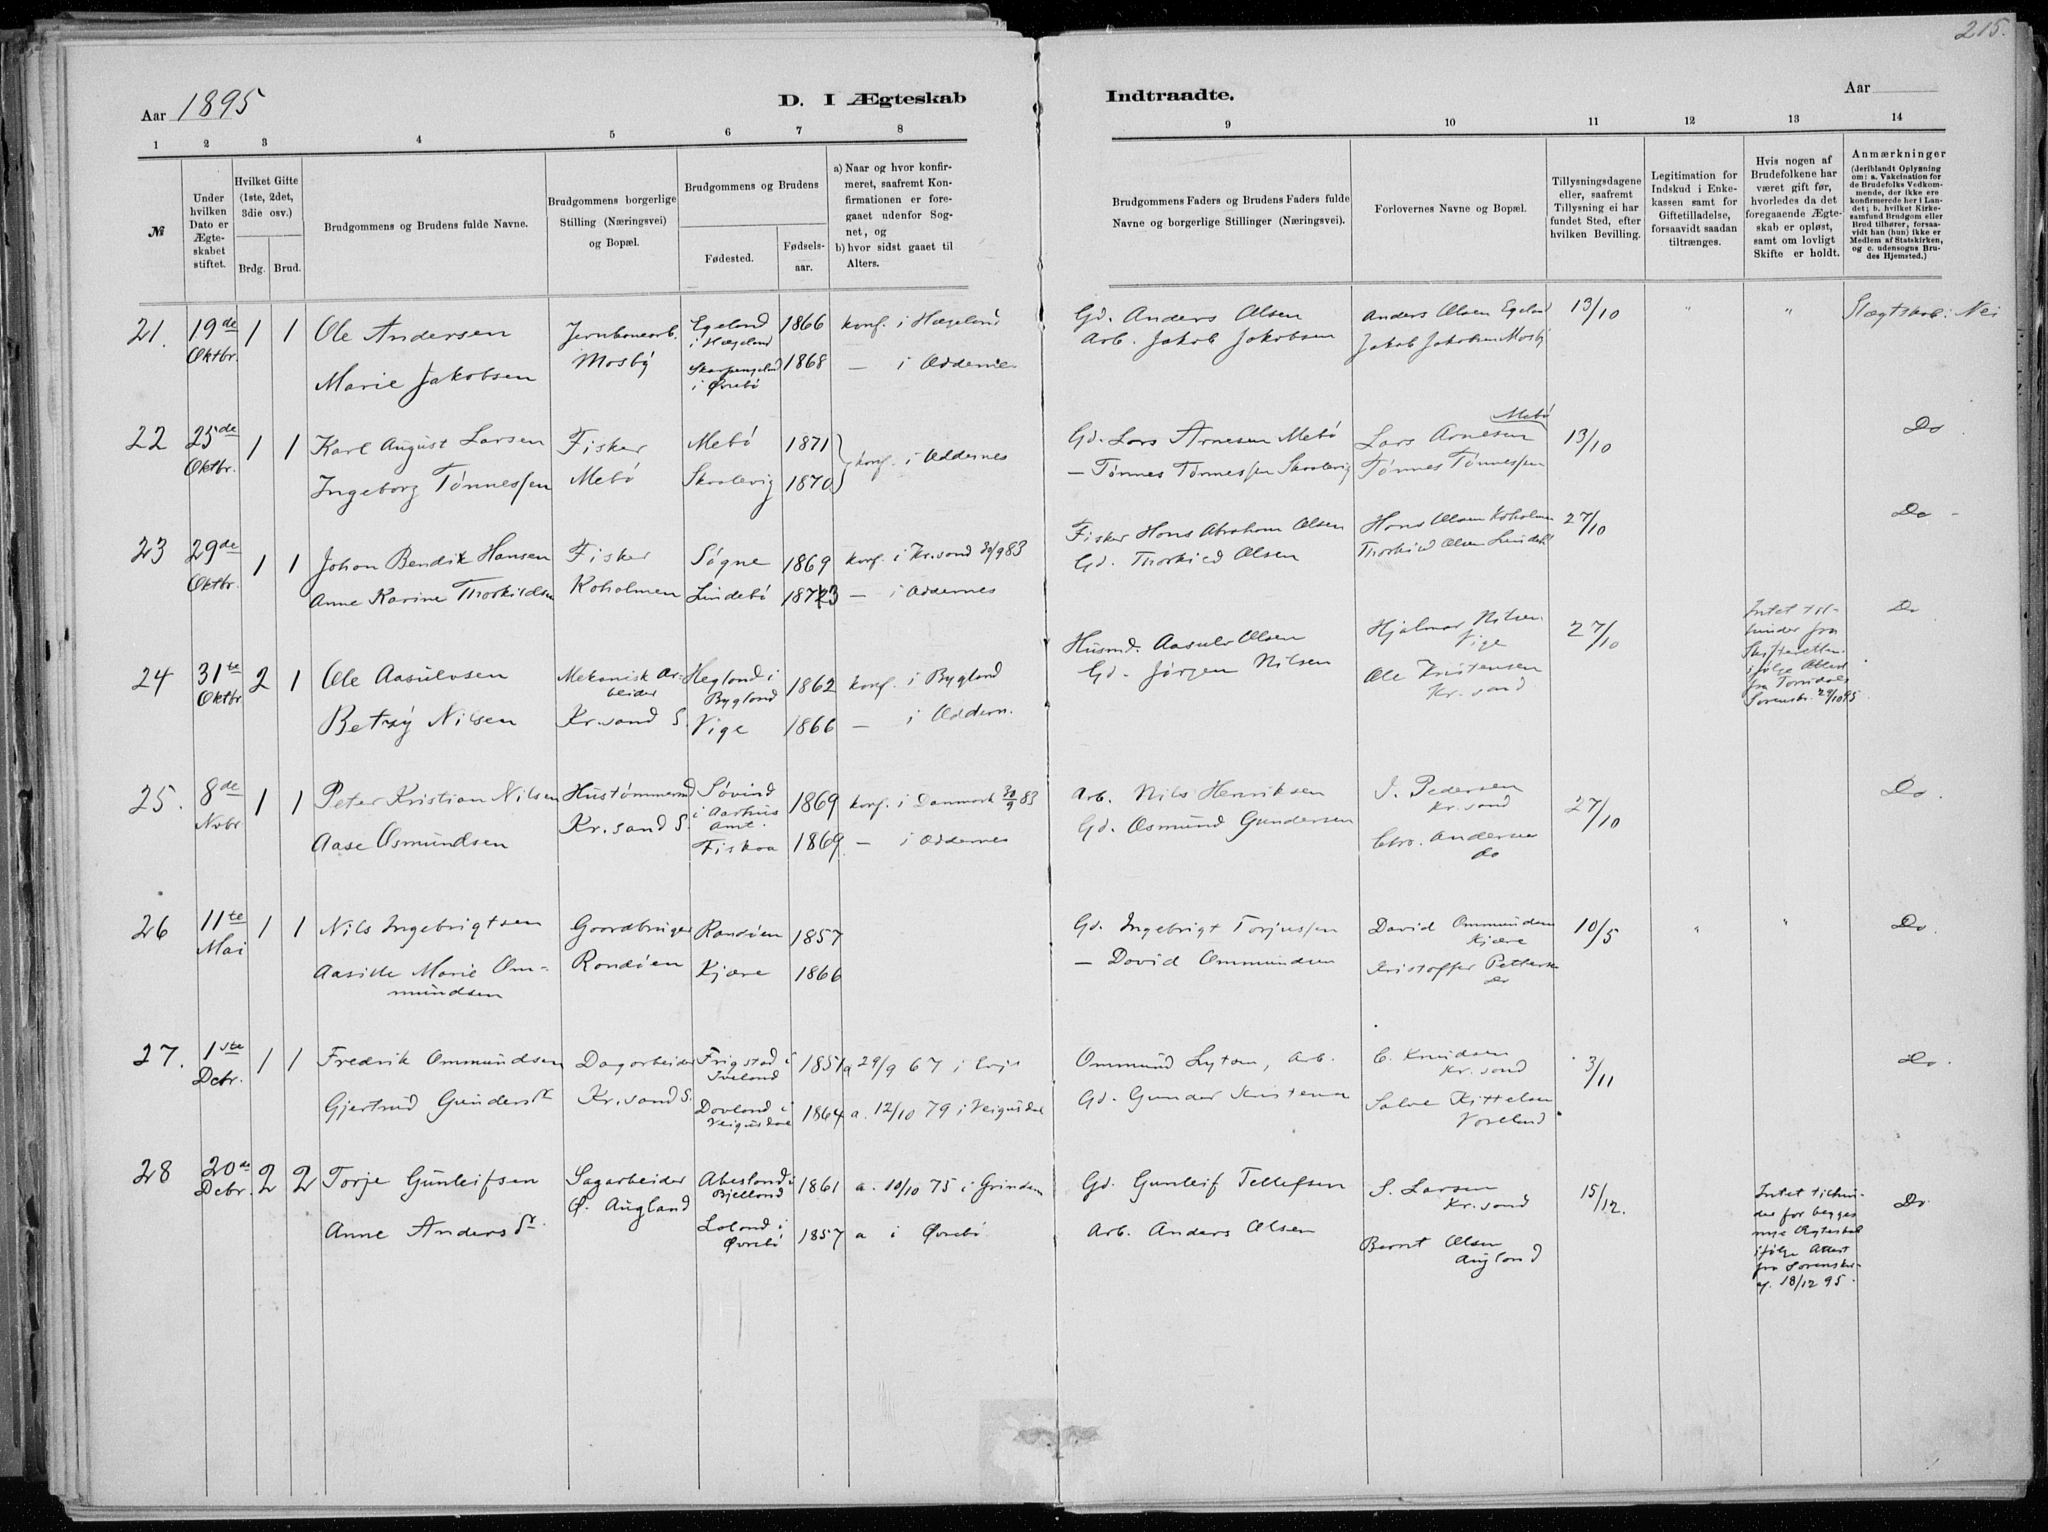 215.
Aar 1895
D. I Ægteskab Indtraadte.
Aar
1 2 3 4 5 6 7 8 9 10 11 12 13 14
№
Under hvilken Dato er Ægteskabet stiftet.
Hvilket Gifte (1ste, 2det, 3die osv.)
Brdg. Brud.
Brudgommens og Brudens fulde Navne.
Brudgommens borgerlige Stilling (Næringsvei) og Bopæl.
Brudgommens og Brudens
Fødested.
Fødselsaar.
a) Naar og hvor konfirmeret, saafremt Konfirmationen er foregaaet udenfor Sognet, og
b) hvor sidst gaaet til Alters.
Brudgommens Faders og Brudens Faders fulde Navne og borgerlige Stillinger (Næringsvei).
Forlovernes Navne og Bopæl.
Tillysningsdagene eller, saafremt Tillysning ei har fundet Sted, efter hvilken Bevilling.
Legitimation for Indskud i Enkekassen samt for Giftetilladelse, forsaavidt saadan tiltrænges.
Hvis nogen af Brudefolkene har været gift før, hvorledes da det foregaaende Ægteskab er opløst, samt om lovligt Skifte er holdt.
Anmærkninger (deriblandt Oplysning om: a. Vakcination for de Brudefolks Vedkommende, der ikke ere konfirmerede her i Landet; b. hvilket Kirkesamfund Brudgom eller Brud tilhører, forsaavidt han (hun) ikke er Medlem af Statskirken, og c. udensogns Brudes Hjemsted.)
21. 19de Oktbr. 1 1 Ole Andersen Jernbanearb. Mosby Egeland i Hægeland 1866 konf. i Hægeland Gd. Anders Olsen Anders Olsen Egeland 13/10 " " Slægtskab: Nei
Marie Jakobsen i Øvrebø 1868 — i Oddernes Arb. Jakob Jakobsen Jakob Jakobsen Mosby
22 25de Oktbr. 1 1 Karl August Larsen Fisker Mebø Mebø 1871 konf. i Oddernes Gd. Lars Arnesen Mebø Lars Arnesen Mebø 13/10 Do
Ingeborg Tønnessen Skaalevig 1870 — Tønnes Tønnessen Skaalevig Tønnes Tønnessen
23 29de Oktbr. 1 1 Johan Bendik Hansen Fisker Koholmen Søgne 1869 konf. i Kr.sand 30/9 83 Fisker Hans Abraham Olsen Hans Olsen Koholmen 27/10 Do
Anne Karine Thorkildsen Lindebø 1873 — i Oddernes Gd. Thorkild Olsen Thorkild Olsen Lindebø
24 31te Oktbr. 2 1 Ole Aasulvsen Mekanisk Arbeider Kr.sand S. Hegland i Bygland 1862 konf. i Bygland Husmd. Aasulv Olsen Hjalmar Nilsen Vige 27/10 Do
Betzy Nilsen Vige 1866 — i Oddern. Gd. Jørgen Nilsen Ole Kristensen Kr.sand
Intet tilhinder fra Skifteretten ifølge Attest fra Torridals Sorenskr. 29/10 95
25. 8de Novbr. 1 1 Peter Kristian Nilsen Hustømmermd Kr.sand S. Søvind i Aarhus Amt. 1869 konf. i Danmark 30/9 83 Arb. Nils Henriksen J. Pedersen Kr.sand 27/10 Do.
Aase Osmundsen Fiskaa 1869. — i Oddernes Gd. Osmund Gundersen Chr. Andersen do
26 11te Mai 1 1 Nils Ingebrigtsen Gaardbruger Randøen Randøen 1857 Gd. Ingebrigt Torjussen David Ommundsen Kjære 10/5 " " Do.
Aasille Marie Ommundsen Kjære 1866 — David Ommundsen Kristoffer Petterse do
27. 1ste Decbr. 1 1 Fredrik Ommundsen Dagarbeider Kr.sand S. Frigstad i Iveland 1851 a 29/9 67 i Evje Ommund Lytom, Arb. C. Knudsen Kr.sand 3/11 Do.
Gjertrud Gundersdr Dovland i 1864 a. 12/10 79 i Gd. Gunder Kristensen Salve Kittelsen
28 20de Decbr. 2 2 Torje Gunleifsen Sagarbeider Ø. Augland Abesland i Bjelland 1861 a. 10/10 75 i Grindem Gd. Gunleif Tellefsen S. Larsen Kr.sand 15/12. Do
Anne Andersdr. Loland i Øvrebø 1857 a i Øvrebø Arb. Anders Olsen Bernt Olsen Augland
Intet tilhinder for begges nye Ægteskab ifølge Attest fra Sorenskr. af. 18/12 95.